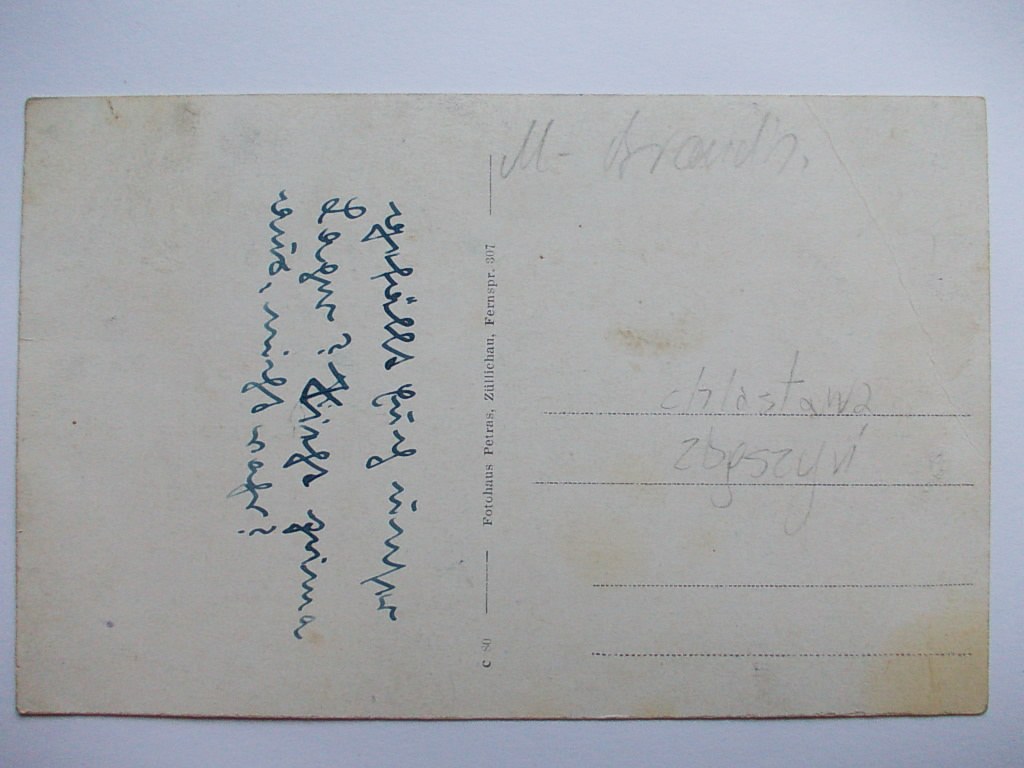 Gefällt Euch unser
Lager? Sieht prima
aus, nicht wahr?
C 80
Fotohaus Petras, Züllichau, Fernspr. 307
M-
chlastawa
zbąszyń